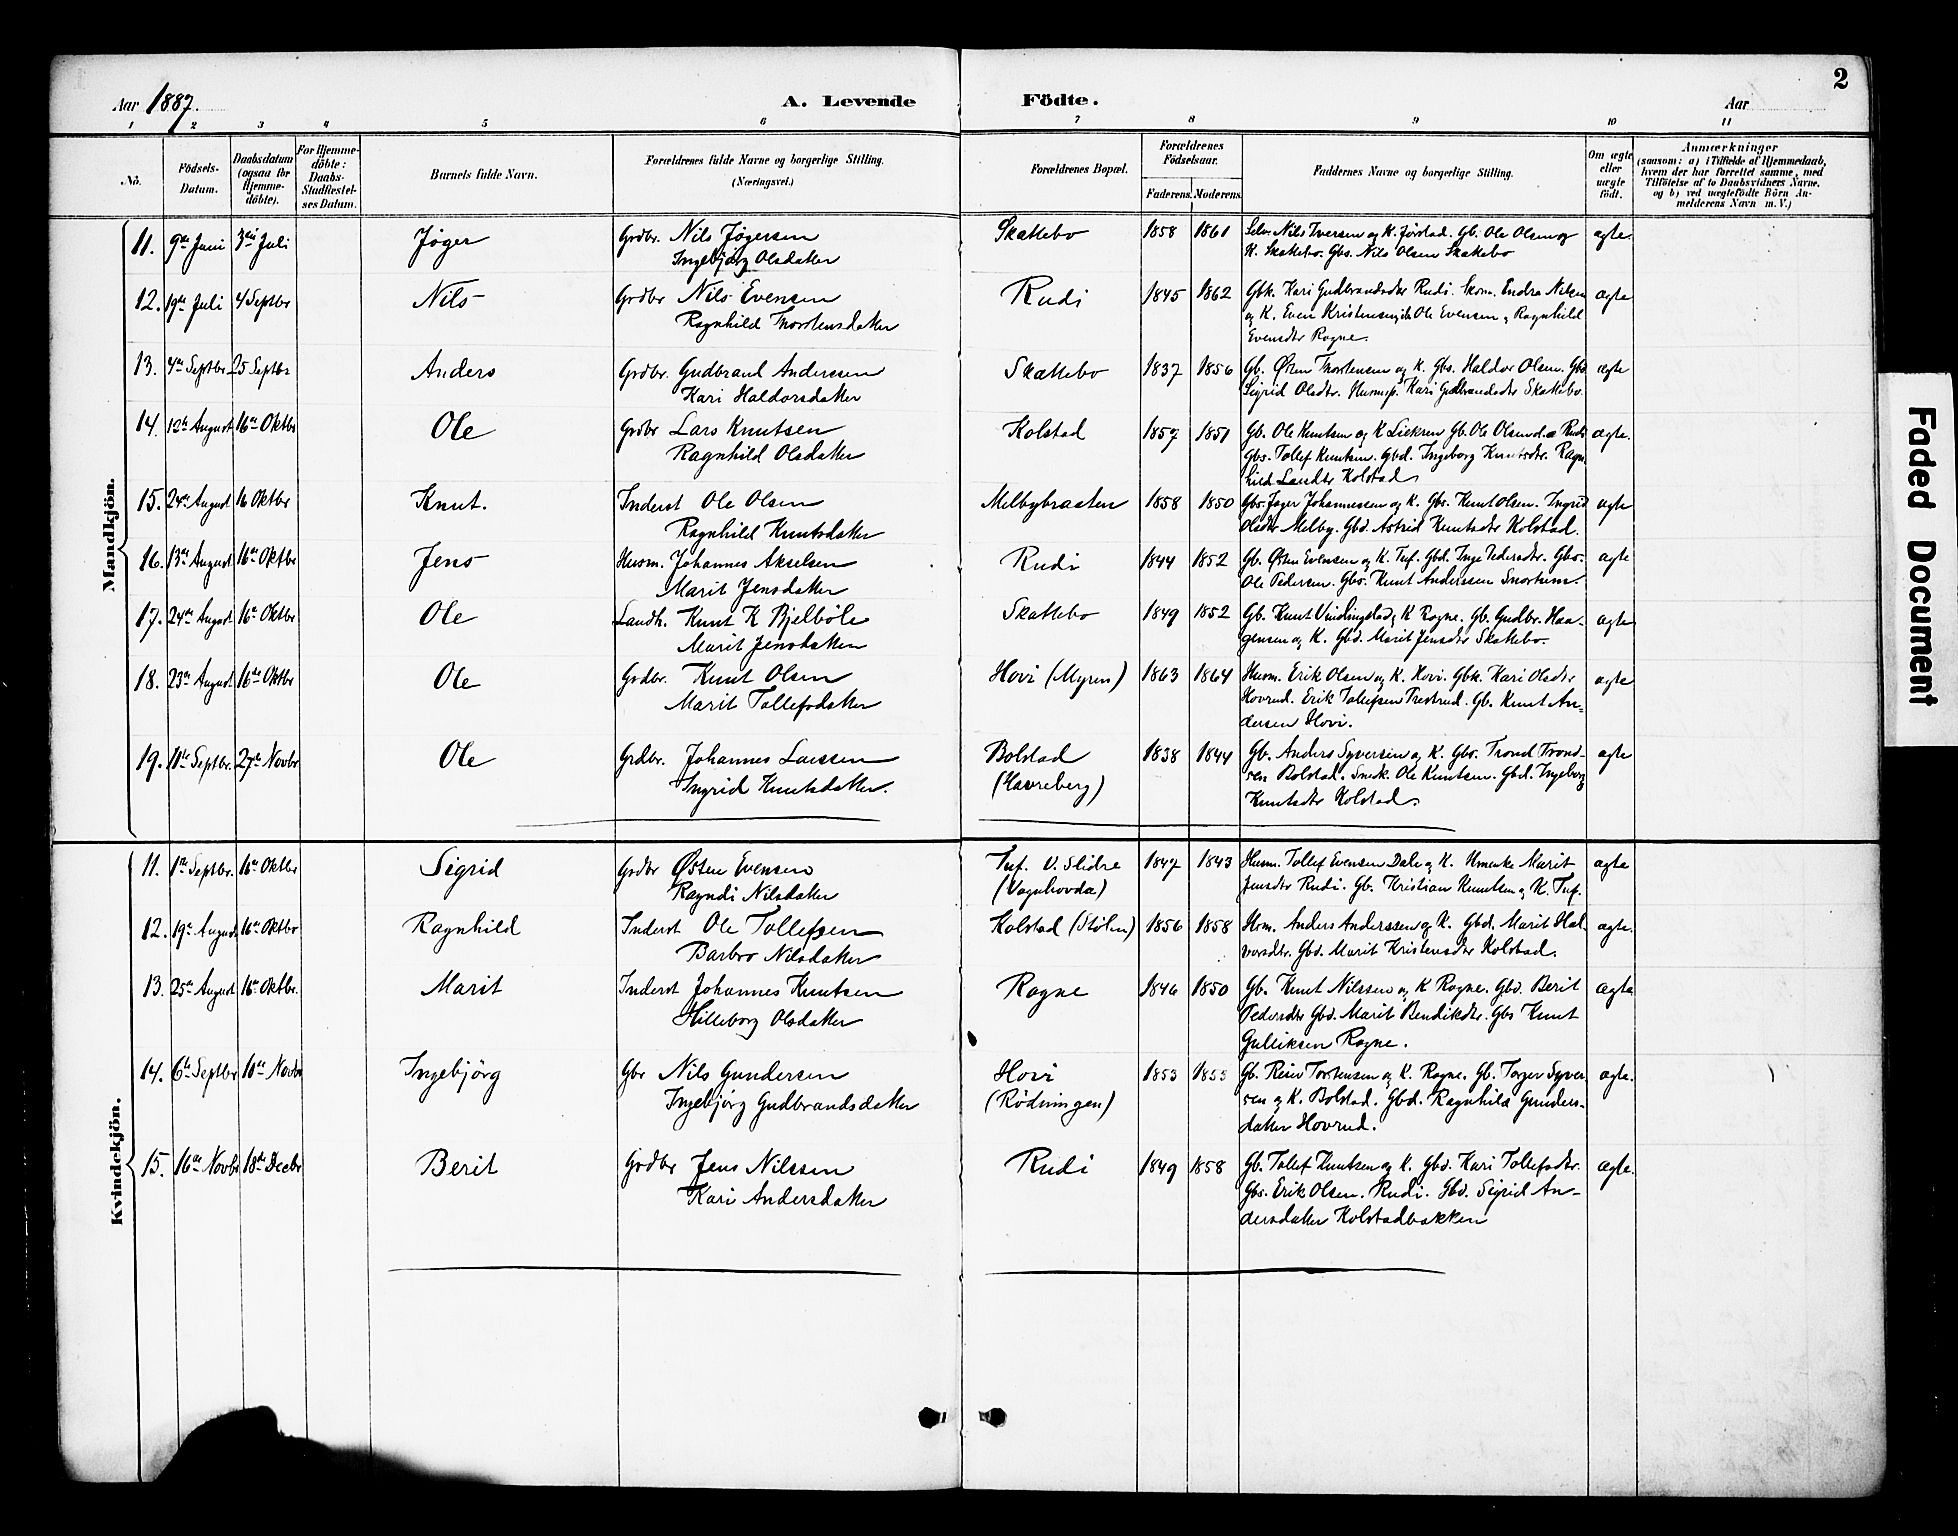 2
Aar 1887.
A. Levende
Födte.
Aar
1 2 3 4 5 6 7 8 9 10 11
No.
Födsels-Datum.
Daabsdatum (ogsaa for Hjemmedöbte).
For Hjemmedöbte: Daabs-Stadfæstelses Datum.
Barnets fulde Navn.
Forældrenes fulde Navne og borgerlige Stilling.
(Næringsvei.)
Forældrenes Bopæl.
Forældrenes Födselsaar.
Faderens. Moderens.
Faddernes Navne og borgerlige Stilling.
Om ægte eller uægte födt.
Anmærkninger
(saasom: a) i Tilfælde af Hjemmedaab, hvem der har forrettet samme, med Tilföielse af to Daabsvidners Navne, og b) ved uægtefödte Börn Anmelderens Navn m. V.)
Mandkjön.
11. 9de Juni 3die Juli Jøger Grdbr. Nils Jøgersen Skattebo 1858 1861 Selv. Nils Iversen og K. Jørstad. Gb. Ole Olsen og ægte.
Ingebjørg Olsdatter K. Skattebo. Gbs. Nils Olsen Skattebo
12. 19de Juli 4 Septbr Nils Grdbr Nils Evensen Rudi 1845 1862 Gbk. Kari Gudbrandsdtr Rudi. Skom. Endre Nilsen ægte
Ragnhild Thorstensdatter og K. Even Kristensen Ole Evensen, Ragnhild
Evensdtr Rogne.
13. 4de Septbr. 25 Septbr Anders Grdbr. Gudbrand Anderssen Skattebo 1837 1856 Gb. Østen Thorstensen og K. Gbs. Haldor Olsen. Gbd ægte
Kari Haldorsdatter Sigrid Olsdtr. Kari Gudbrandsdtr Skattebo.
14. 12te August 16de Oktbr Ole Grdbr Lars Knutsen Kolstad 1857 1851 Gb. Ole Knutsen og K Gb. Ole Olsen Rudi ægte.
Ragnhild Olsdatter Gbs. Tollef Knutsen. Gbd. Ingeborg Knutsdtr. Ragnhild Kolstad.
15. 24de August 16 Oktbr Knut. Inderst Ole Olsen Melbybraaten 1858 1850 Gbs. Jøger Johannessen og K. Gbs. Knut Olsen. Ingrid ægte
Ragnhild Knutsdatter Olsdtr Melby. Gbd. Astrid Knutsdtr Kolstad.
16. 13de August 16de Oktbr Jens Husm. Johannes Akselsen Rudi 1844 1852 Gb. Østen Evensen og K. Tuf. Gbd. Inge Pedersdtr. Gbs. ægte
Marit Jensdatter Ole Pedersen. Gbs. Knut Anderssen Snortum.
17. 24de August 16de Oktbr Ole Landh. Knut K Bjelbøle Skattebo 1849 1852 Gb. Knut Vindingstad og K Rogne. Gb. Gudbr. Haa- ægte
Marit Jensdatter gensen og K. Gbd. Marit Jensdtr Skattebo.
18. 23de August 16de Oktbr Ole Grdbr. Knut Olsen Hovi (Myren) 1863 1864 Husm. Erik Olsen og K. Hovi. Gbk. Kari Olsdtr ægte
Marit Tollefsdatter Hovrud. Erik Tollefsen Trestrud. Gb. Knut An-
dersen Hovi.
19. 11te Septbr. 27de Novbr Ole Grdbr. Johannes Larssen Bolstad 1838 1844 Gb. Anders Syversen og K. Gbs. Trond Trond- ægte
Ingrid Knutsdatter. (Havreberg) sen Bolstad. Snek. Ole Knutsen. Gbd. Ingeborg
Knutsdtr Kolstad.
Kvindekjön.
11. 1ste Septbr. 16de Oktbr Sigrid Grdbr Østen Evensen Tuf. V. Slidre 1847 1843 Husm. Tollef Evensen Dale og K. Marit ægte
Rayndi Nilsdatter (Vagnhovda) Jensdtr Rudi. Gb. Kristian Knutsen og K. Tuf.
12. 19de August. 16de Oktbr Ragnhild Inderst Ole Tollefsen Kolstad (Stølen) 1856 1858 Hsm. Anders Anderssen og K. Gbd. Marit Hal- ægte.
Barbro Nilsdatter vorsdtr. Gbd. Marit Kristensdtr Kolstad.
13. 25de August 16de Oktbr. Marit Inderst Johannes Knutsen Rogne 1846 1850 Gb. Knut Nilssen og K Rogne. Gbd. Berit ægte
Hilleborg Olsdatter Pedersdtr Gbd. Marit Bendiksdtr. Gbs Knut
Gulliksen Rogne.
14. 6te Septbr 10de Novbr Ingebjörg Gbr Nils Gundersen Hovi 1853 1855 Gb. Reier Torstensen og K. Rogne. Gb. Torger Syver- ægte.
Ingebjörg Gudbrandsdatter (Rödningen) sen og K. Bolstad. Gbd. Ragnhild Gunders-
datter Hovrud.
15. 16de Novbr 18de Decbr Berit Grdbr Jens Nilssen Rudi 1849 1858 Gb. Tollef Knutsen og K. Gbd. Kari Tollefsdtr. ægte.
Kari Andersdatter Gbs. Erik Olsen. Rudi. Gbd. Sigrid An-
dersdatter Kolstadbakken
Faded Document